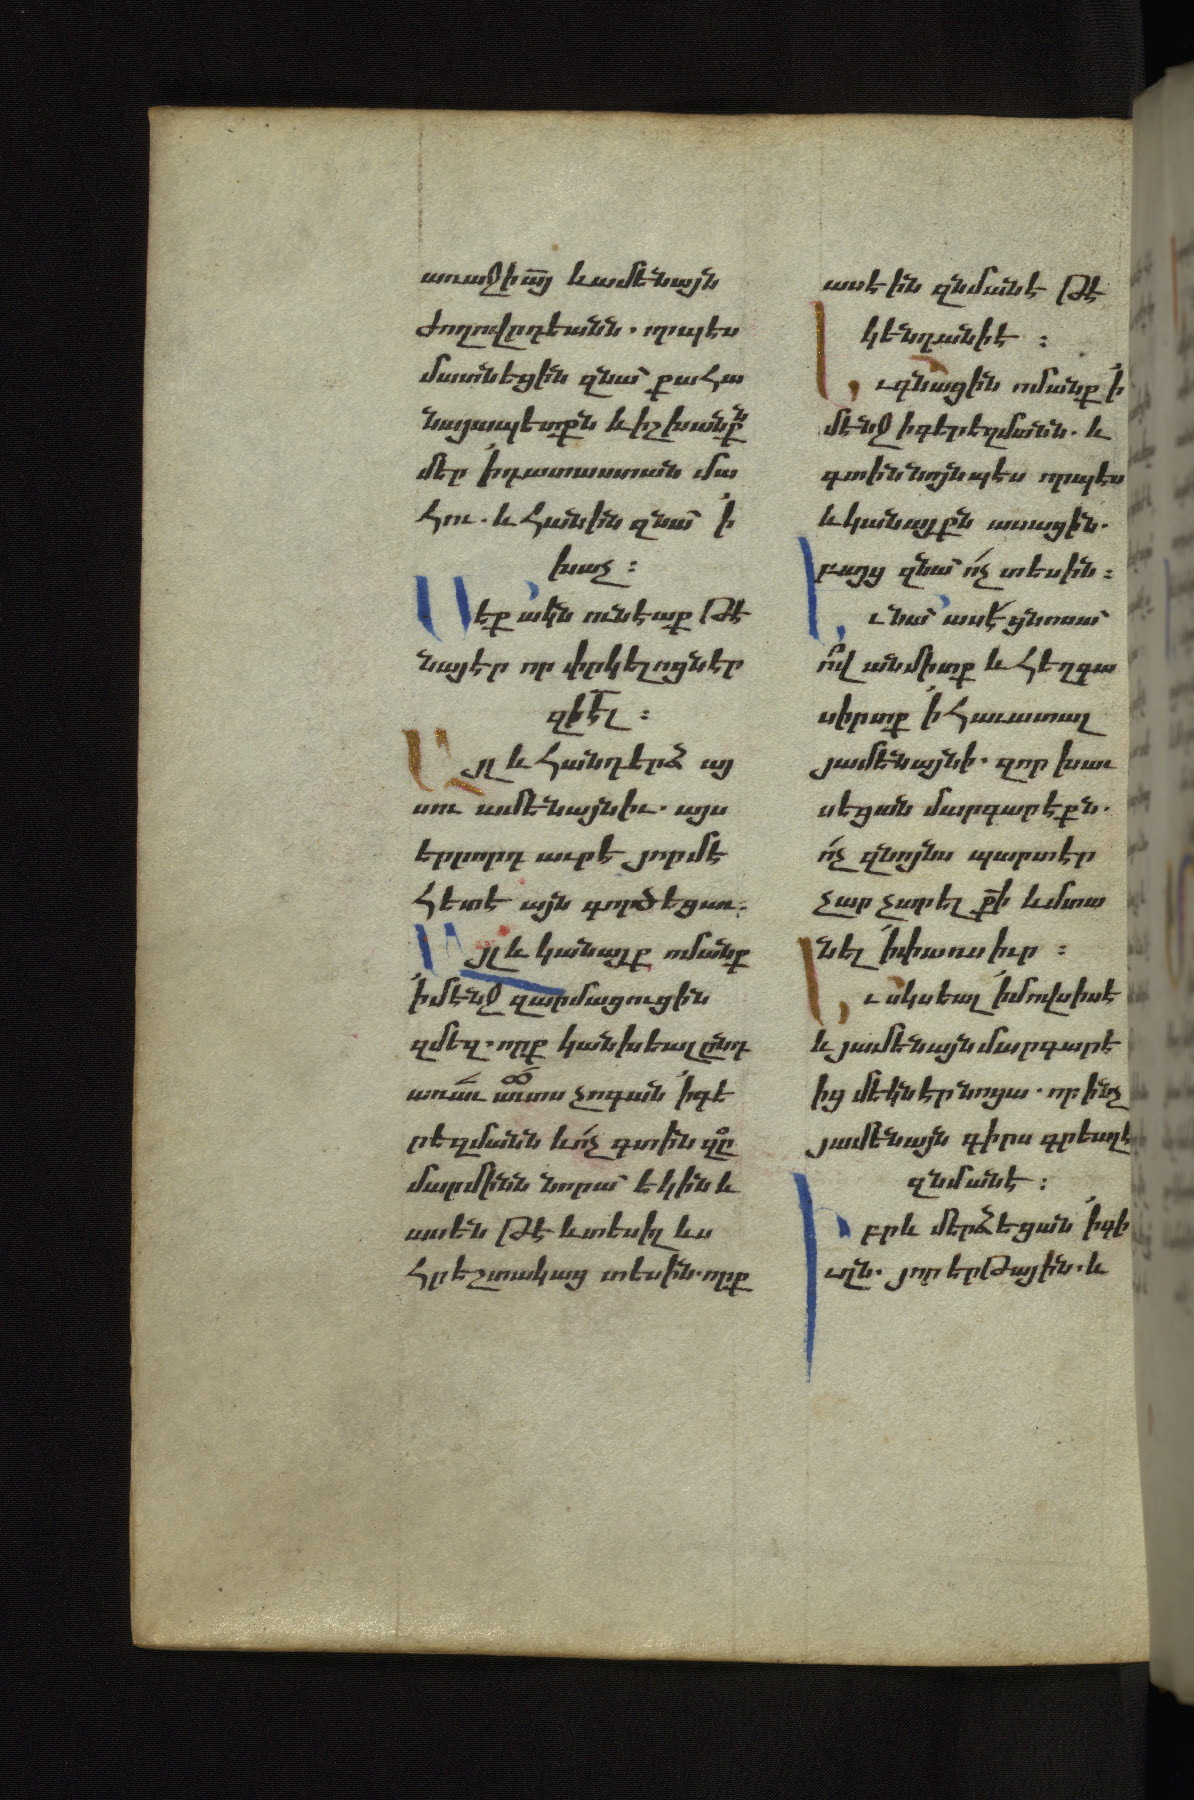 առաջի ա՟յ և ամենայն
ժողովրդեանն. որպէս
մատնեցին զնա քահա
նայապետքն և իշխանքն
մեր ի դատաստան մա
հու. և հանին զնա ի
խաչ :
Մեք ակն ունեաք թէ
նա իցէ որ փրկելոց իցէ
զի՟էլ :
Այլ և հանդերձ այ
սու ամենայնիւ. այս
երրորդ աւր է յորմէ
հետէ այն գործեցաւ.
Այլ և կանայք ոմանք
ի մէնջ զարմացուցին
զմեզ. որք կանխեալ ընդ
առաւաւտս չոգան ի գե
րեզմանն և ոչ գտին զը
մարմինն նորա եկին և
ասեն թէ և տեսիլ ևս
հրեշտակաց տեսին. որք
ասէին զնմանէ թէ
կենդանի է :
Եւ գնացին ոմանք ի
մէնջ ի գերեզմանն. և
գտին նոյնպէս որպէս
և կանայքն ասացին.
բայց զնա ոչ տեսին :
Եւ նա ասէ ցնոսա
ո՛վ անմիտք և հեղգա
սիրտք ի հաւատալ
յամենայնի. զոր խաւ
սեցան մարգարէքն.
ոչ զնոյնս պարտ էր
չար չարել ք՟ի և մտա
նել ի փառս իւր :
Եւ սկսեալ ի մովսիսէ
և յամենայն մարգարէ
ից մեկնէր նոցա. որ ինչ
յամենայն գիրս գրեալ է
զնմանէ :
Իբրև մերձեցան ի գի
ւղն. յոր երթային. և